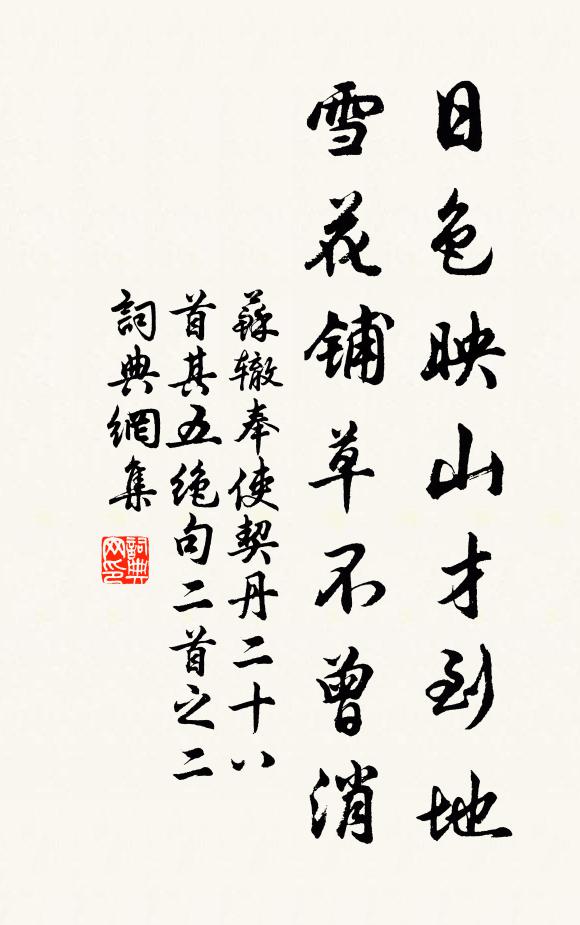 日色映山才到地
雪花铺草不曾消
蘇辙奉使契丹二十八
首其五绝句二首之二
詞典網集
詞典网印